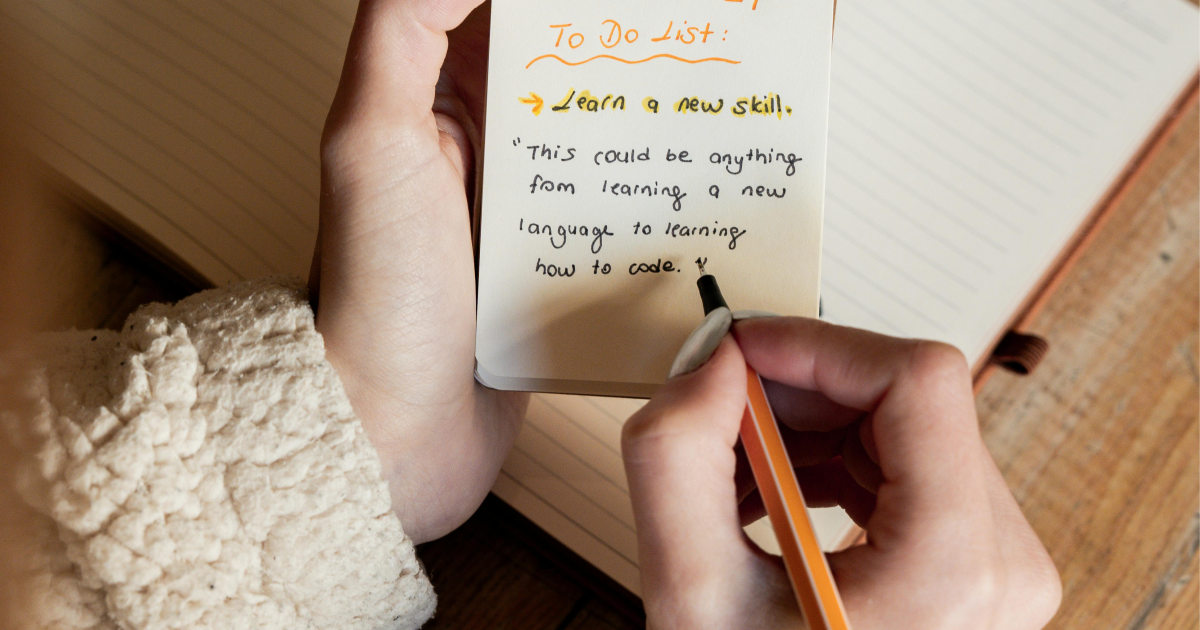 To Do List:
→ Learn a new skill.
"This could be anything
from learning a new
language to learning
how to code."